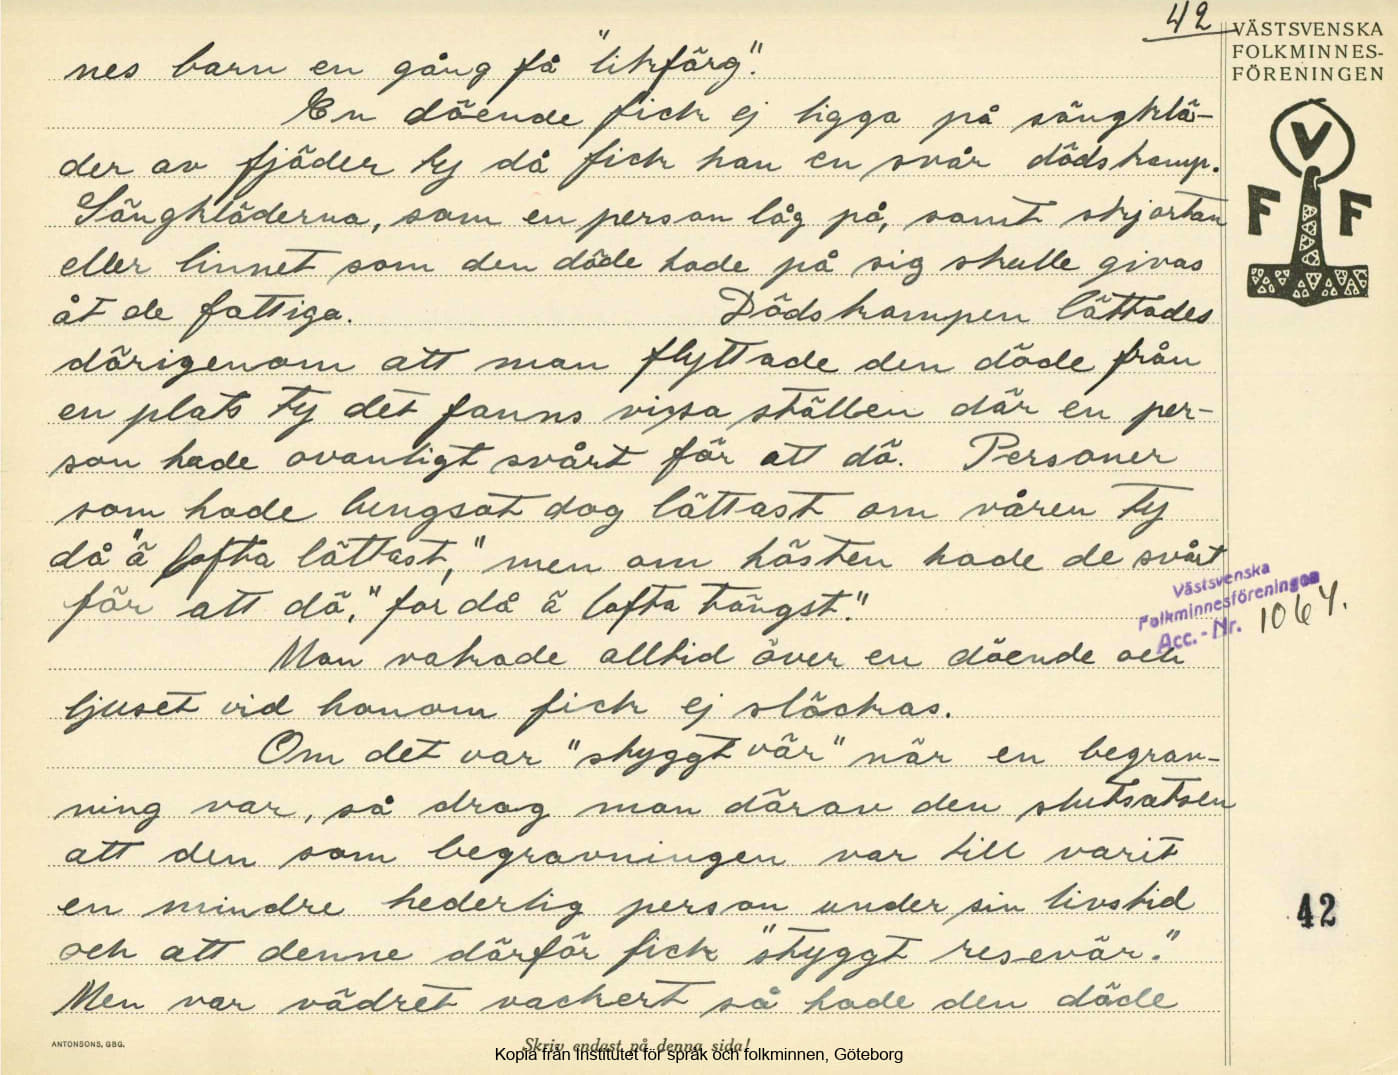 42
VÄSTSVENSKA
FOLKMINNES-
FÖRENINGEN
nes barn en gång få "likfärg".
En döende fick ej ligga på sängklä-
der av fjäder ty då fick han en svår dödskamp.
Sängkläderna, som en person låg på, samt skjortan
eller linnet som den döde hade på sig skulle givas
åt de fattiga. Dödskampen lättades
därigenom att man flyttade den döde från
en plats ty det fanns vissa ställen där en per-
son hade ovanligt svårt för att dö. Personer
som hade lungsot dog lättast om våren ty
då "ä lofta lättast," men om hösten hade de svårt
för att dö, "for då ä lofta tängst."
Man vakade alltid över en döende och
ljuset vid honom fick ej släckas.
Om det var "styggt vär" när en begrav-
ning var, så drog man därav den slutsatsen
att den som begravningen var till varit
en mindre hederlig person under sin livstid
och att denne därför fick "styggt resevär."
Men var vädret vackert så hade den döde
V
F F
Västsvenska
Folkminnesföreningen
Acc.-Nr. 1064.
42
ANTONSONS, GBG.
Skriv endast på denna sida!
Kopia från Institutet för språk och folkminnen, Göteborg